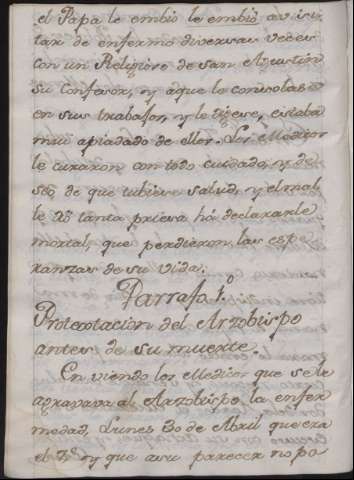 el Papa le embio le embió avisi
tar de enfermo diversas veces
con un Religioso de san Agustin
su Confesor, y aque le consolase
en sus trabajos, y le dijese, estaba
mui apiadado de ellos. Los Medicos
le curaron con todo cuidado, y de
seo, de que tubiese salud, y el mal
le dió tanta priesa ha declararle
mortal, que perdieron las espe
ranzas de su vida.
Parrafo 1.º
Protestacion del Arzobispo
antes de su muerte.
En viendo los Medicos que se le
agravava al Arzobispo la enfer
medad, Lunes 30 de Abril que era
el y que asu parecer no po